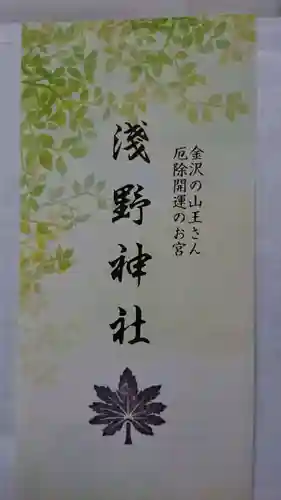 金沢の山王さん
厄除開運のお宮
淺野神社